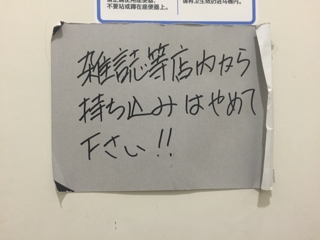 不要站或蹲在座便器上。
雑誌等店内から
持ち込みはやめて
下さい!!